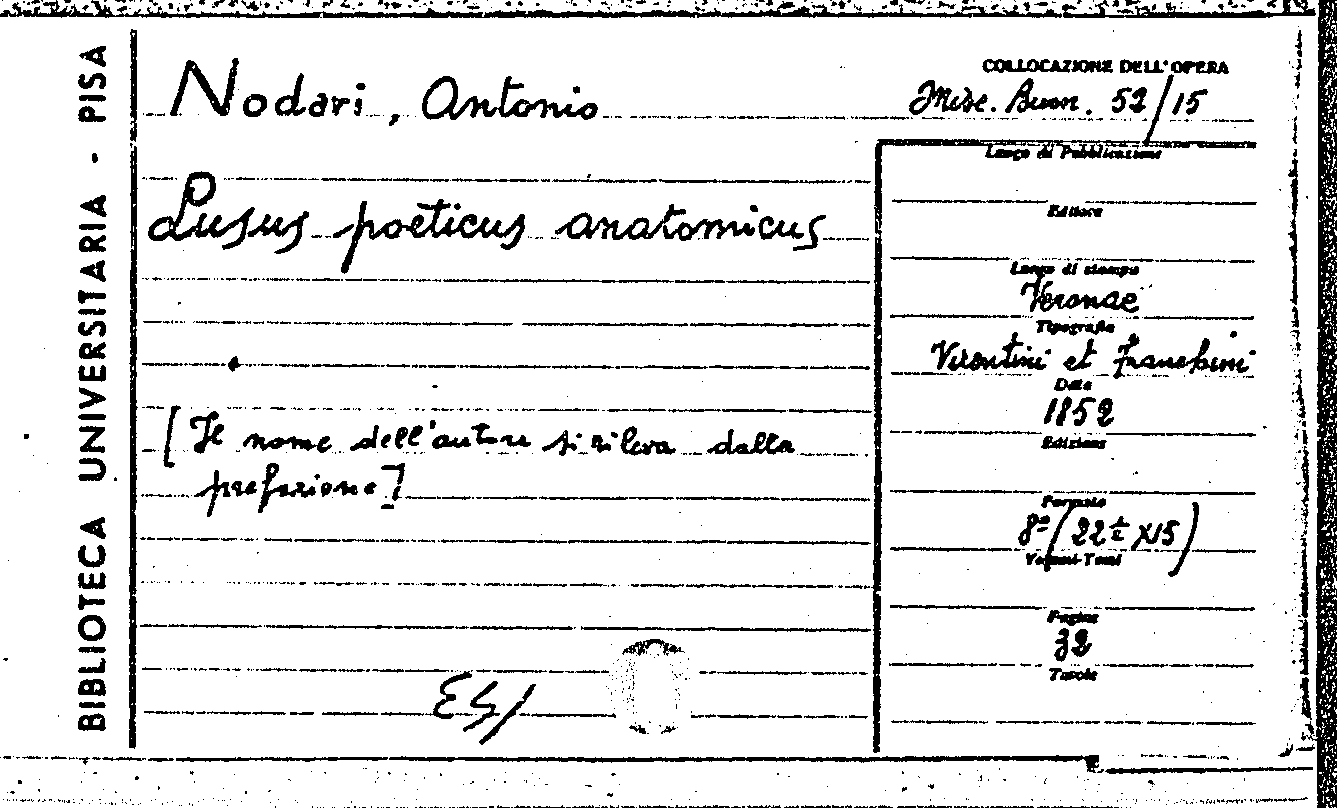 BIBLIOTECA UNIVERSITARIA - PISA
Nodari, Antonio
COLLOCAZIONE DELL'OPERA
Misc. Buon. 52/15
Lusus poëticus anatomicus
[Il nome dell'autore si rileva dalla
prefazione]
Luogo di Pubblicazione
Editore
Luogo di stampa
Veronae
Tipografia
Vicentini et Franchini
Data
1852
Edizione
Formato
8º (22 ½ x15)
Volumi-Tomi
Pagine
32
Tavole